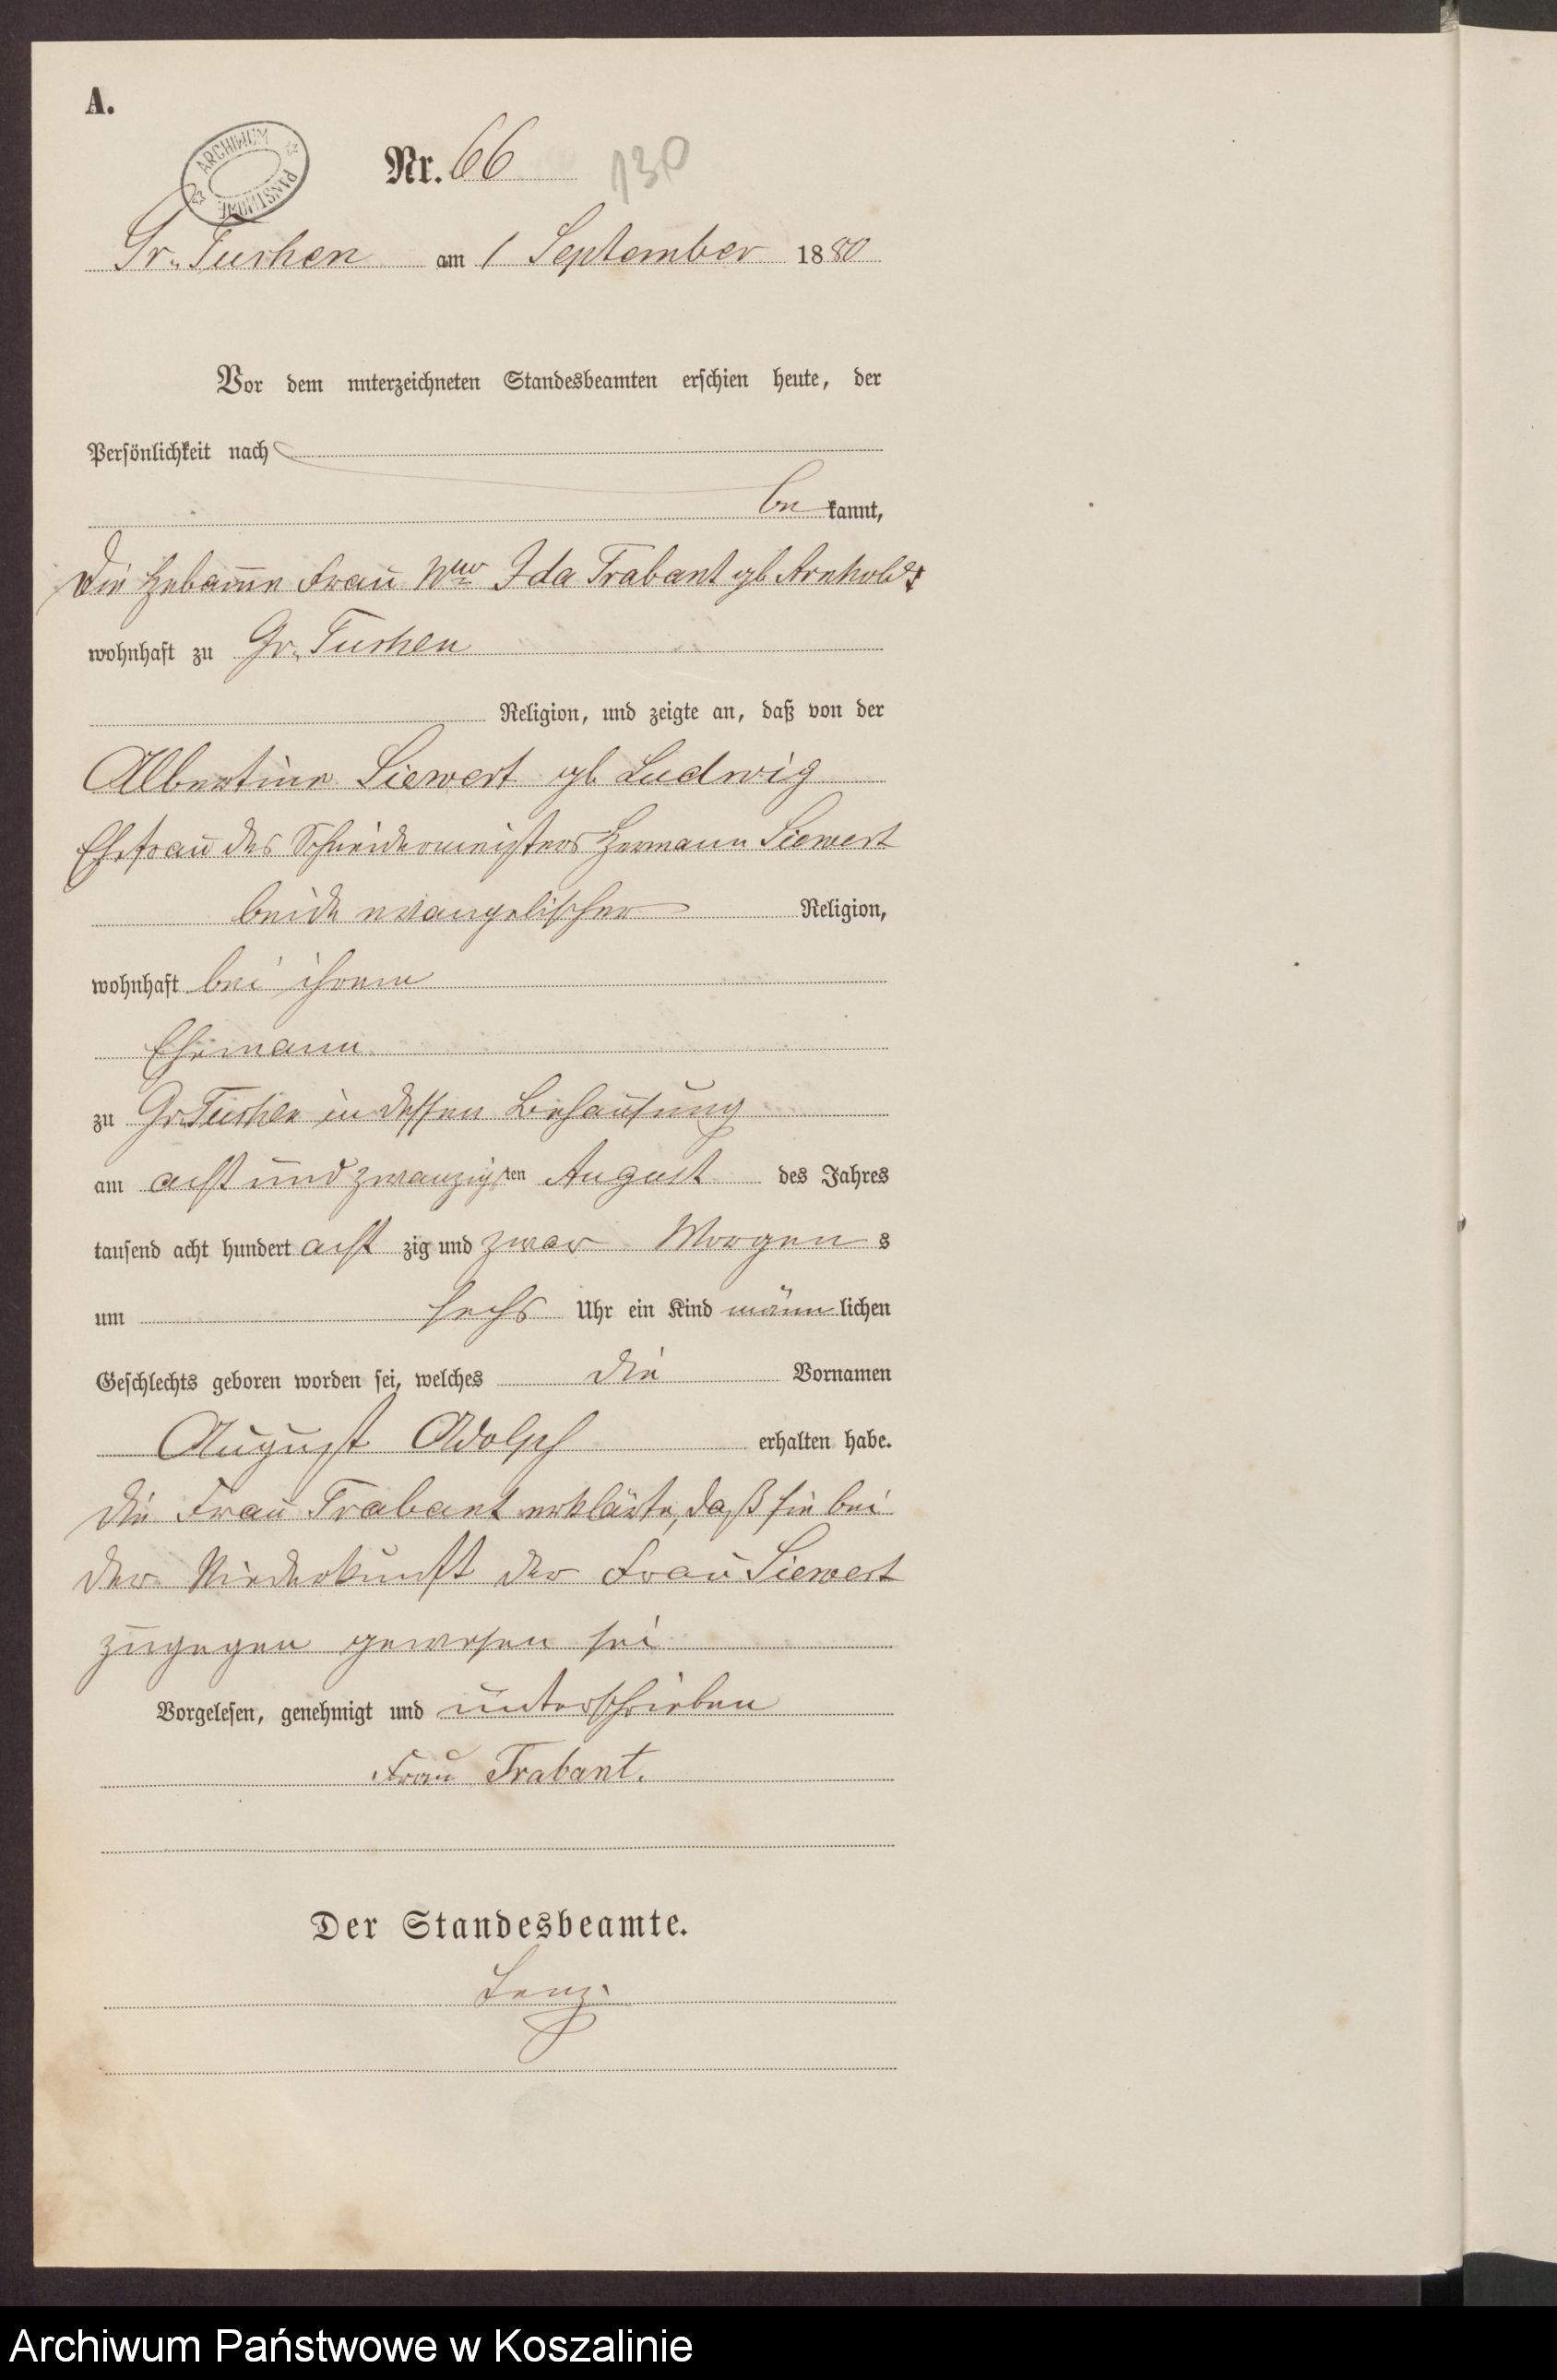 A.
ARCHIWUM PAŃSTWOWE
Nr. 66 130
Gr. Tuchen am 1 September 1880
Vor dem unterzeichneten Standesbeamten erschien heute, der
Persönlichkeit nach
be kannt,
die Hebamme Frau Wwe Ida Trabant gb Arnholdt
wohnhaft zu Gr. Tuchen
Religion, und zeigte an, daß von der
Albertine Siewert gb Ludwig
Ehefrau des Schneidermeisters Hermann Siewert
beide evangelischer Religion,
wohnhaft bei ihrem
Ehemann
zu Gr. Tuchen in dessen Behausung
am acht und zwanzigsten August des Jahres
tausend acht hundert acht zig und zwar Morgens
um sechs Uhr ein Kind männlichen
Geschlechts geboren worden sei, welches die Vornamen
August Adolph erhalten habe.
die Frau Trabant erklärte, daß sie bei
der Niederkunft der Frau Siewert
zugegen gewesen sei
Vorgelesen, genehmigt und unterschrieben
Frau Trabant.
Der Standesbeamte.
Lenz.
Archiwum Państwowe w Koszalinie